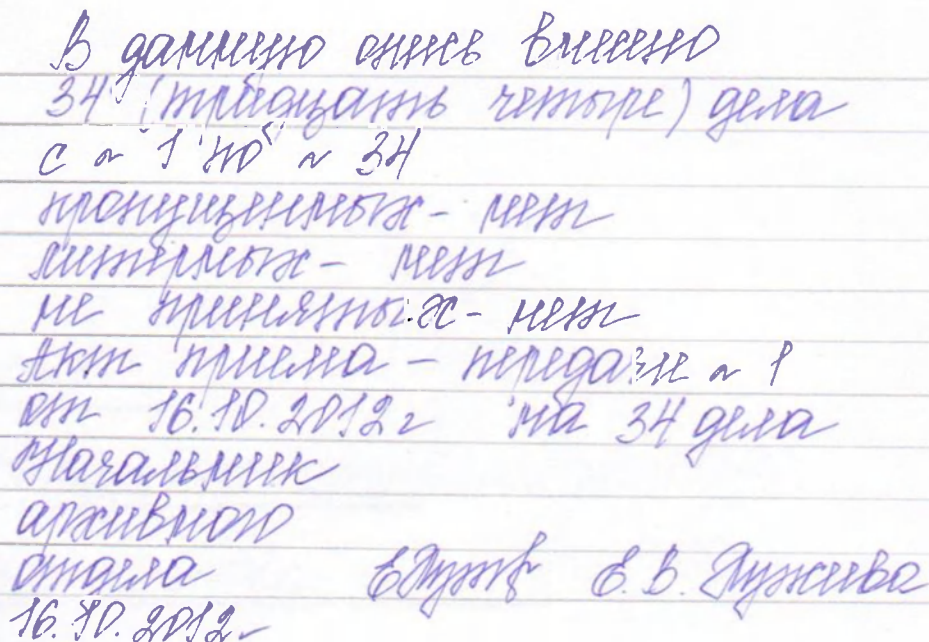 В данную опись внесено
34 (тридцать четыре) дела
с ~ 1 по ~ 34
пропущенных - нет
литерных - нет
не принятых - нет
Акт приема - передачи ~ 1
от 16.10.2012 г на 34 дела
Начальник
архивного
отдела Е. В.
16.10.2012 г